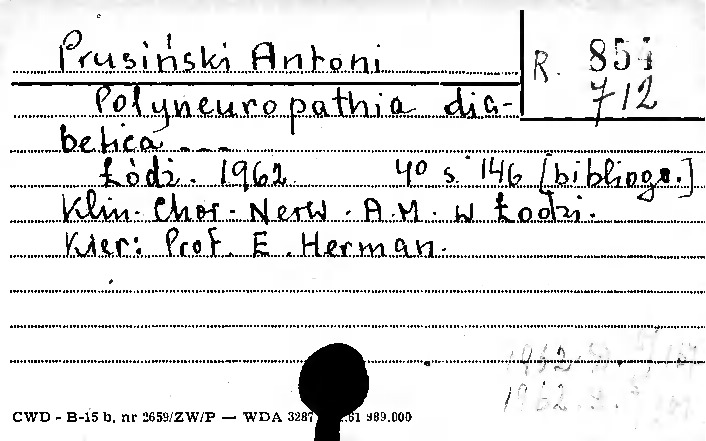 Prusiński Antoni
R. 854
712
Polyneuropathia dia-
betica ---
Łódź. 1962. 4° s. 146 [bibliogr.]
Klin. Chor. Nerw. A.M. w Łodzi.
Kier: Prof. E. Herman.
1962
1962
CWD - B-15 b, nr 2659/ZW/P — WDA 3287 .61 989.000